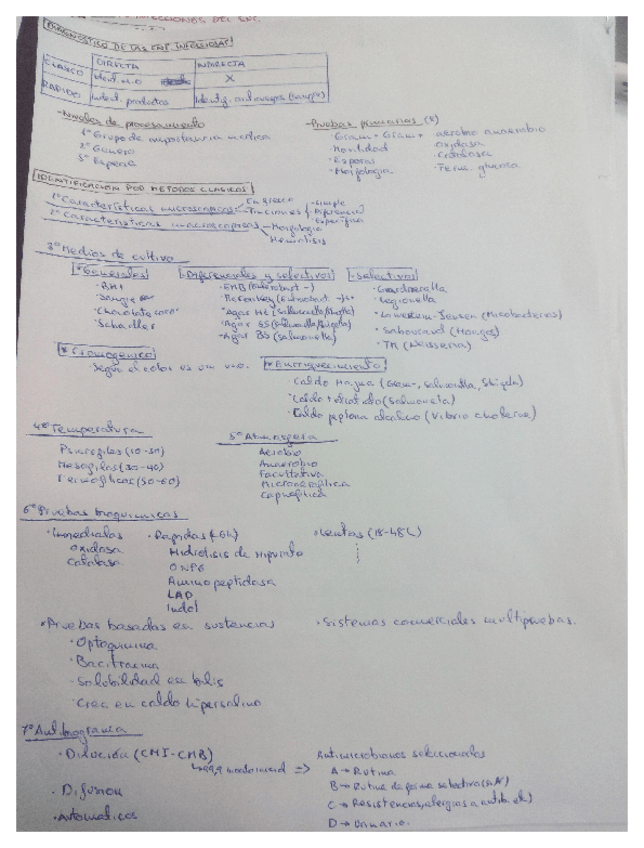 INFECCIONES DEL SNC.
DIAGNOSTICO DE LAS ENF. INFECCIOSAS
DIRECTA INDIRECTA
CLASICO Ident. mo X
RAPIDO Ident. productos
-Niveles de procesamiento
1º Grupo de importancia medica
2º Genero
3º Especie
-Pruebas primarias (8)
Gram - Gram + aerobio anaerobio
·Movilidad ·Oxidasa
·Esporas ·Catalasa
·Morfologia ·Ferm. glucosa
IDENTIFICACION POR METODOS CLASICOS
1º Caracteristicas microscopicas En fresco
Tinciones Simple
Diferencial
Especifica
2º Caracteristicas macroscopicas Morfologia
Hemolisis
3º Medios de cultivo
*Generales
·BHI
·Sangre
·Chocolate
·Schaedler
-Diferenciales y selectivos
·EMB
·Agar HE (Salmonella/Shigella)
·Agar SS (Salmonella/Shigella)
·Agar BS (Salmonella)
-Selectivos
·Gardnerella
·Legionella
·Lowenstein-Jensen (Micobacterias)
·Sabouraud (Hongos)
·TM (Neisseria)
*Cromogenico
·Segun el color es un mo.
*Enriquecimiento
·Caldo Hajna (Gram-, Salmonella, Shigella)
·Caldo tetrationato (Salmonella)
·Caldo peptona alcalino (Vibrio cholerae)
4º Temperatura
Psicrofilos
Mesofilos (30-40)
Termofilicos (50-60)
5º Atmosfera
Aerobio
Anaerobio
Facultativa
Microaerofilica
Capnofilica
6º Pruebas bioquimicas
·Inmediatas
Oxidasa
Catalasa
·Rapidas (<6h)
Hidrolisis de Hipurato
ONPG
Aminopeptidasa
LAP
Indol
·Lentas (18-48h)
·Pruebas basadas en sustancias
·Optoquinina
·Bacitracina
·Solubilidad en bilis
·Crec en caldo hipersalino
·Sistemas comerciales multipruebas.
7º Antibiograma
·Dilución (CMI-CMB)
↳99,9 =>
·Difusion
·Automaticos
Antimicrobianos seleccionados
A → Rutina
B → Rutina de forma selectiva
C → Resistencias, alergias a antib.
D → Urinario.